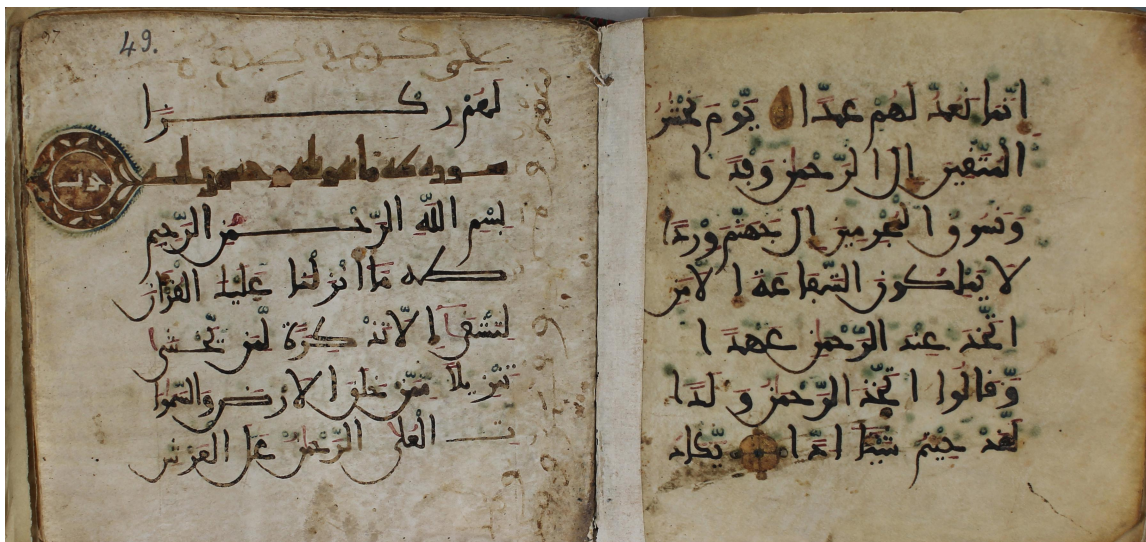 إنَّما نَعُدُّ لَهُمْ عَدًّا يَوْمَ نَحْشُرُ
الْمُتَّقِينَ إلى الرَّحْمٰنِ وَفْدًا
وَنَسُوقُ الْمُجْرِمِينَ إلى جَهَنَّمَ وِرْدًا
لَا يَمْلِكُونَ الشَّفَاعَةَ إلَّا مَنِ
اتَّخَذَ عِنْدَ الرَّحْمٰنِ عَهْدًا
وَّقَالُوا اتَّخَذَ الرَّحْمٰنُ وَلَدًا
لَّقَدْ جِئْتُمْ شَيْئًا إدًّا يَّكَادُ
49.
لَهُمْ رِكْزًا
سورة طه مائة
بِسْمِ اللَّهِ الرَّحْمٰنِ الرَّحِيمِ
طه مَا أَنْزَلْنَا عَلَيْكَ الْقُرْآنَ
لِتَشْقَى إِلَّا تَذْكِرَةً لِّمَنْ يَّخْشَى
تَنْزِيلًا مِّمَّنْ خَلَقَ الْأَرْضَ وَالسَّمٰوٰ
تِ الْعُلَى الرَّحْمٰنُ عَلَى الْعَرْشِ